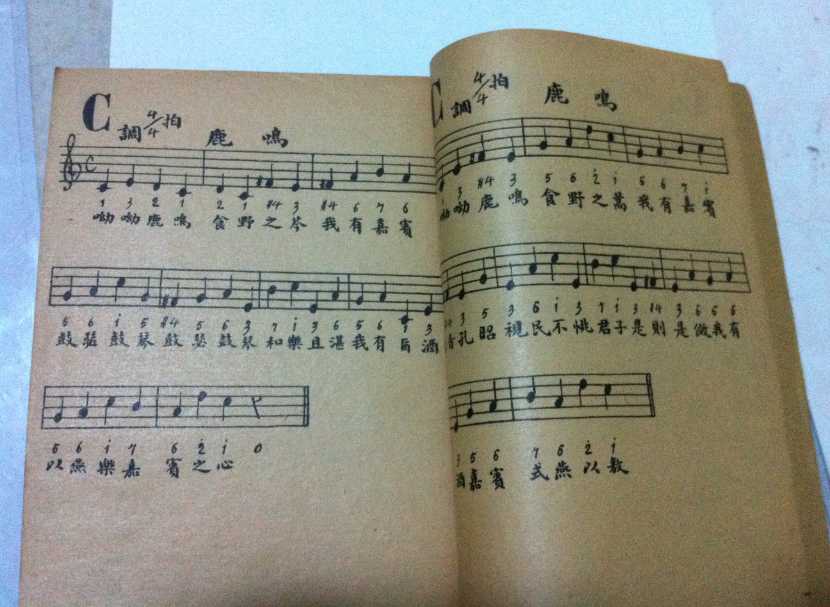 C 調 4/4 拍 鹿鳴
1 3 2 1 2 1 #4 3 #4 6 7 6
呦呦鹿鳴 食野之芩 我有嘉賓
5 6 i 5 #4 5 6 3 7 i 3 6 5 6 1 3
鼓瑟鼓琴鼓瑟鼓琴 和樂且湛我有旨酒
5 6 i 7 6 2 i 0
以燕樂嘉 賓之心
C 調 4/4 拍 鹿鳴
3 #4 3 5 6 2 i 6 6 7 i
呦呦鹿鳴 食野之蒿我有嘉賓
3 5 3 6 i 3 7 i 3 #4 3 6 6 6
孔昭視民不恌君子是則是傚我有
3 5 6 7 6 2 i
酒嘉賓 式燕以敖